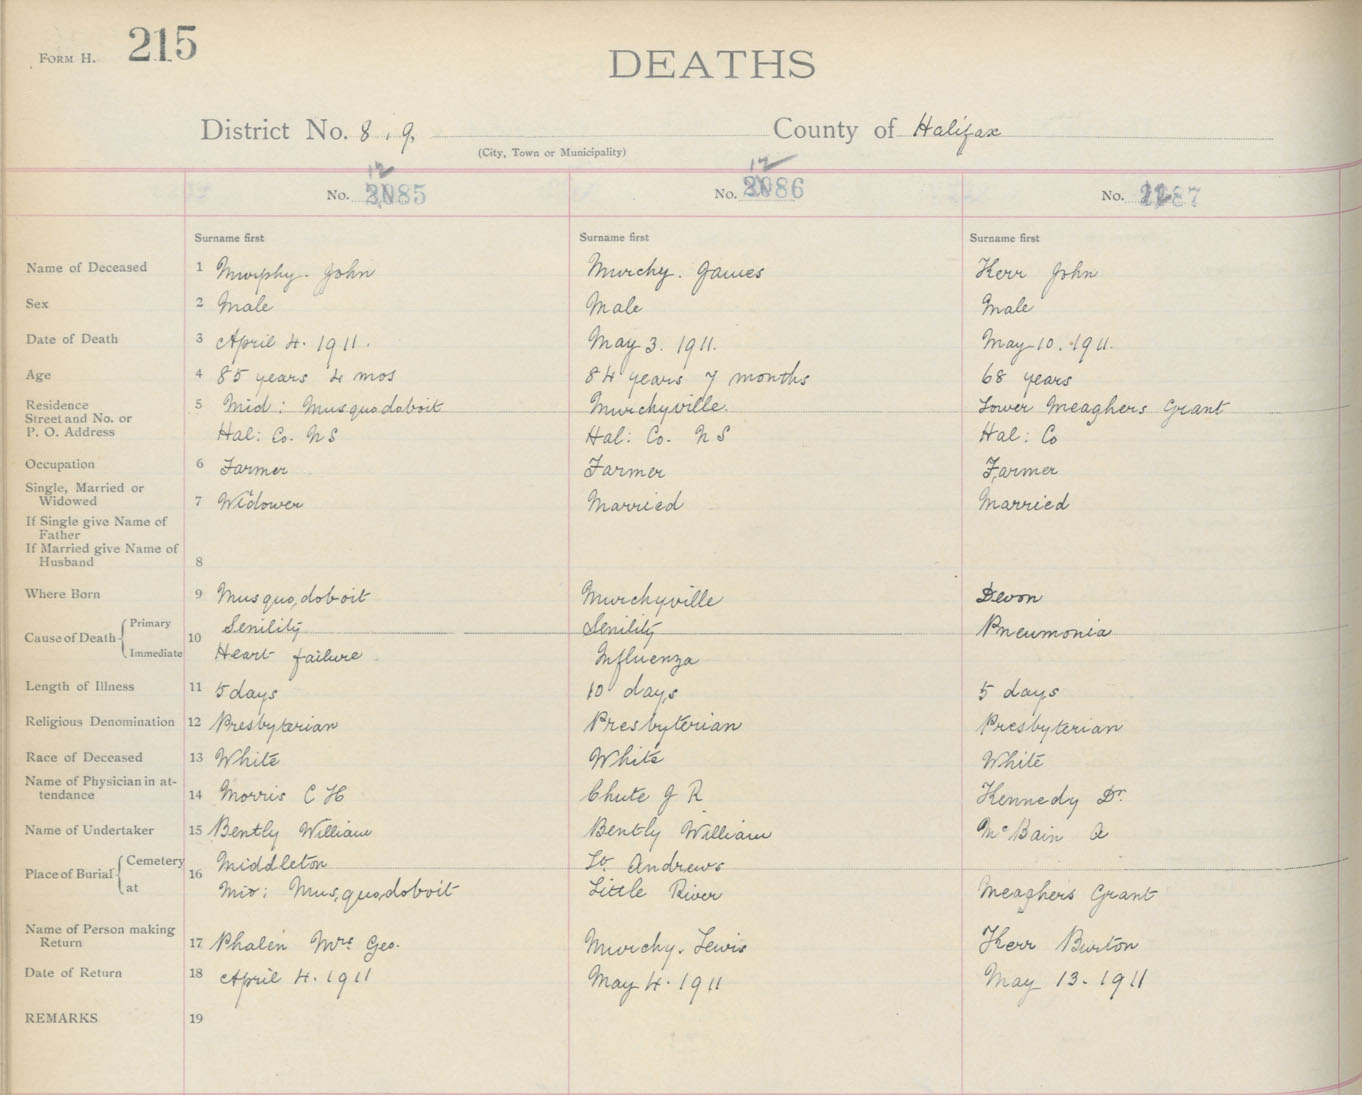 FORM H. 215
DEATHS
District No. 8, 9, County of Halifax
(City, Town or Municipality)
No. 2085 12 No. 2086 12 No. 87
Surname first Surname first Surname first
Name of Deceased 1 Murphy. John Murchy. James Kerr John
Sex 2 Male Male Male
Date of Death 3 April 4. 1911. May 3. 1911. May 10. 1911.
Age 4 85 years 4 mos 84 years 7 months 68 years
Residence 5 Mid: Musquodoboit Murchyville. Lower Meaghers Grant
Street and No. or
P. O. Address Hal: Co. NS Hal: Co. NS Hal: Co
Occupation 6 Farmer Farmer Farmer
Single, Married or
Widowed 7 Widower Married Married
If Single give Name of
Father
If Married give Name of
Husband 8
Where Born 9 Musquodoboit Murchyville Devon
Cause of Death Primary 10 Senility Senility Pneumonia
Immediate Heart failure Influenza
Length of Illness 11 5 days 10 days 5 days
Religious Denomination 12 Presbyterian Presbyterian Presbyterian
Race of Deceased 13 White White White
Name of Physician in at-
tendance 14 Morris C H Chute J R Kennedy Dr.
Name of Undertaker 15 Bently William Bently William McBain A
Place of Burial Cemetery 16 Middleton St Andrews
at Mid: Musquodoboit Little River Meaghers Grant
Name of Person making
Return 17 Phalen Mrs Geo. Murchy. Lewis Kerr Burton
Date of Return 18 April 4. 1911 May 4. 1911 May 13. 1911
REMARKS 19